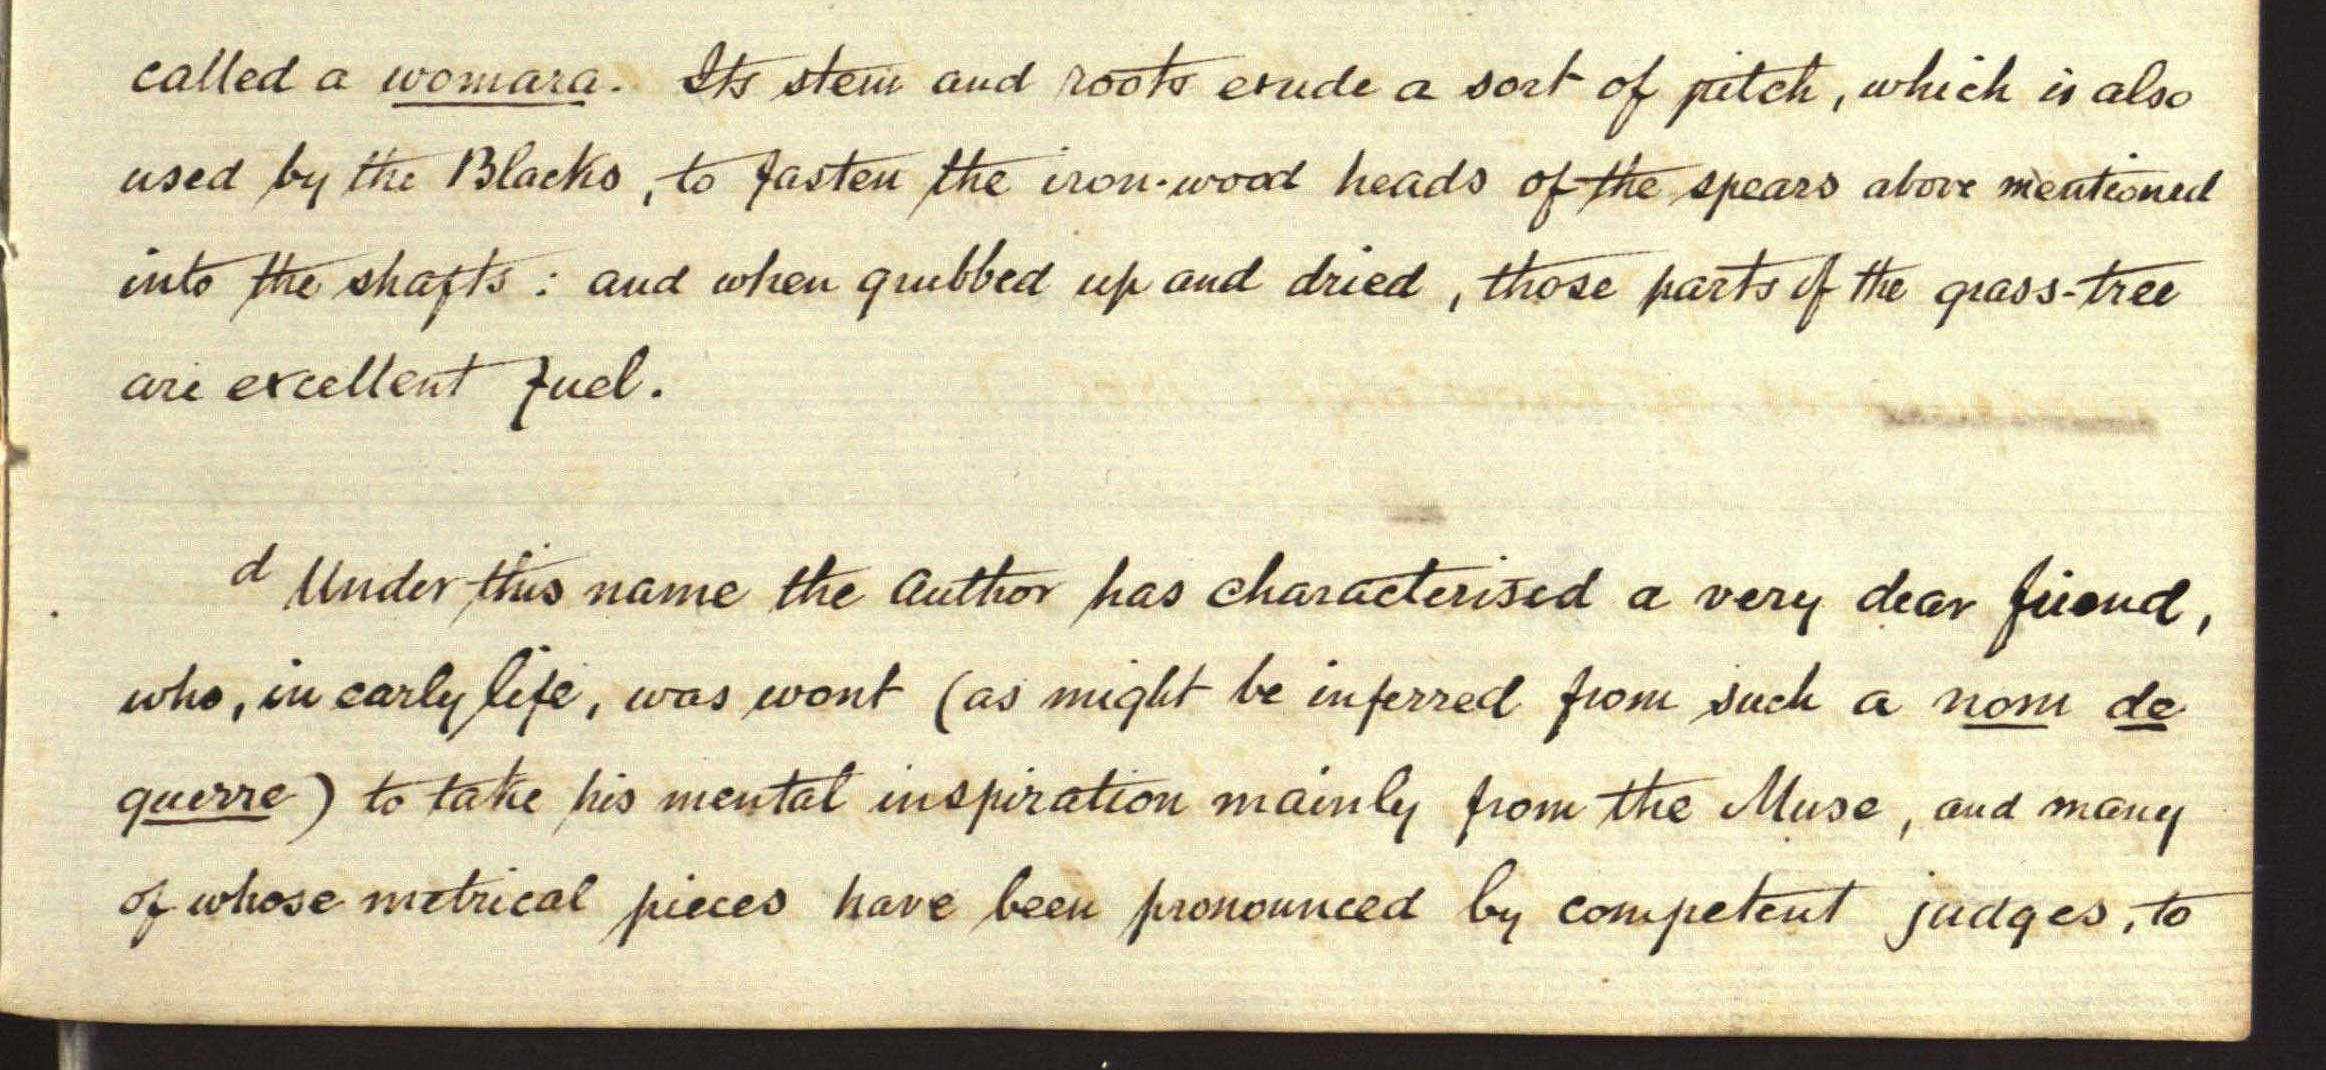 called a womara. Its stem and roots exude a sort of pitch, which is also
used by the Blacks, to fasten the iron-wood heads of the spears above mentioned
into the shafts : and when grubbed up and dried, those parts of the grass-tree
are excellent fuel.
d Under this name the Author has characterised a very dear friend,
who, in early life, was wont (as might be inferred from such a nom de
guerre) to take his mental inspiration mainly from the Muse, and many
of whose metrical pieces have been pronounced by competent judges, to